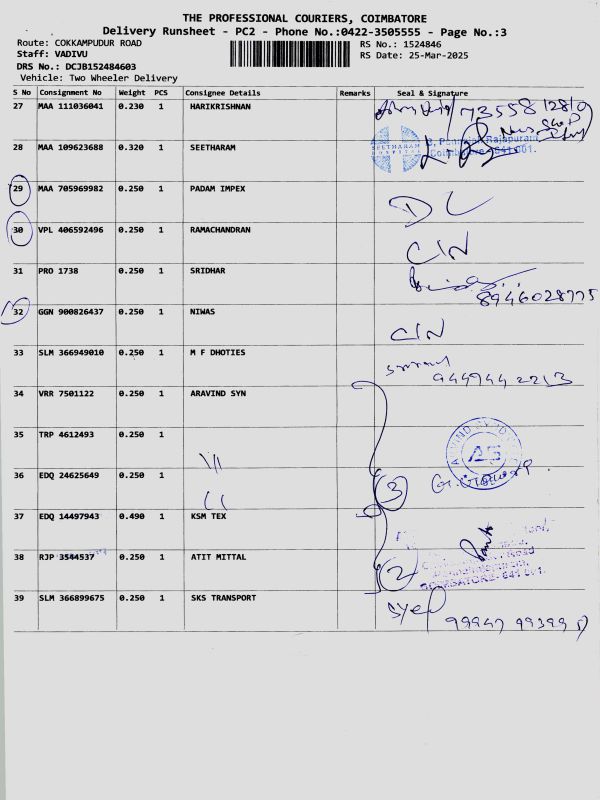 THE PROFESSIONAL COURIERS, COIMBATORE
Delivery Runsheet - PC2 - Phone No.:0422-3505555 - Page No.:3
Route: COKKAMPUDUR ROAD RS No.: 1524846
Staff: VADIVU RS Date: 25-Mar-2025
DRS No.: DCJB152484603
Vehicle: Two Wheeler Delivery
S No Consignment No Weight PCS Consignee Details Remarks Seal & Signature
27 MAA 111036041 0.230 1 HARIKRISHNAN
28 MAA 109623688 0.320 1 SEETHARAM
SEETHARAM
HOSPITAL
Coimbatore - 641 001.
29 MAA 705969982 0.250 1 PADAM IMPEX
DL
30 VPL 406592496 0.250 1 RAMACHANDRAN
CIN
31 PRO 1738 0.250 1 SRIDHAR
8946028775
32 GGN 900826437 0.250 1 NIWAS
CIN
33 SLM 366949010 0.250 1 M F DHOTIES
9449442213
34 VRR 7501122 0.250 1 ARAVIND SYN
35 TRP 4612493 0.250 1
AS
36 EDQ 24625649 0.250 1
3
37 EDQ 14497943 0.490 1 KSM TEX
38 RJP 3544537 0.250 1 ATIT MITTAL
2
COIMBATORE - 641 001.
39 SLM 366899675 0.250 1 SKS TRANSPORT
Syed